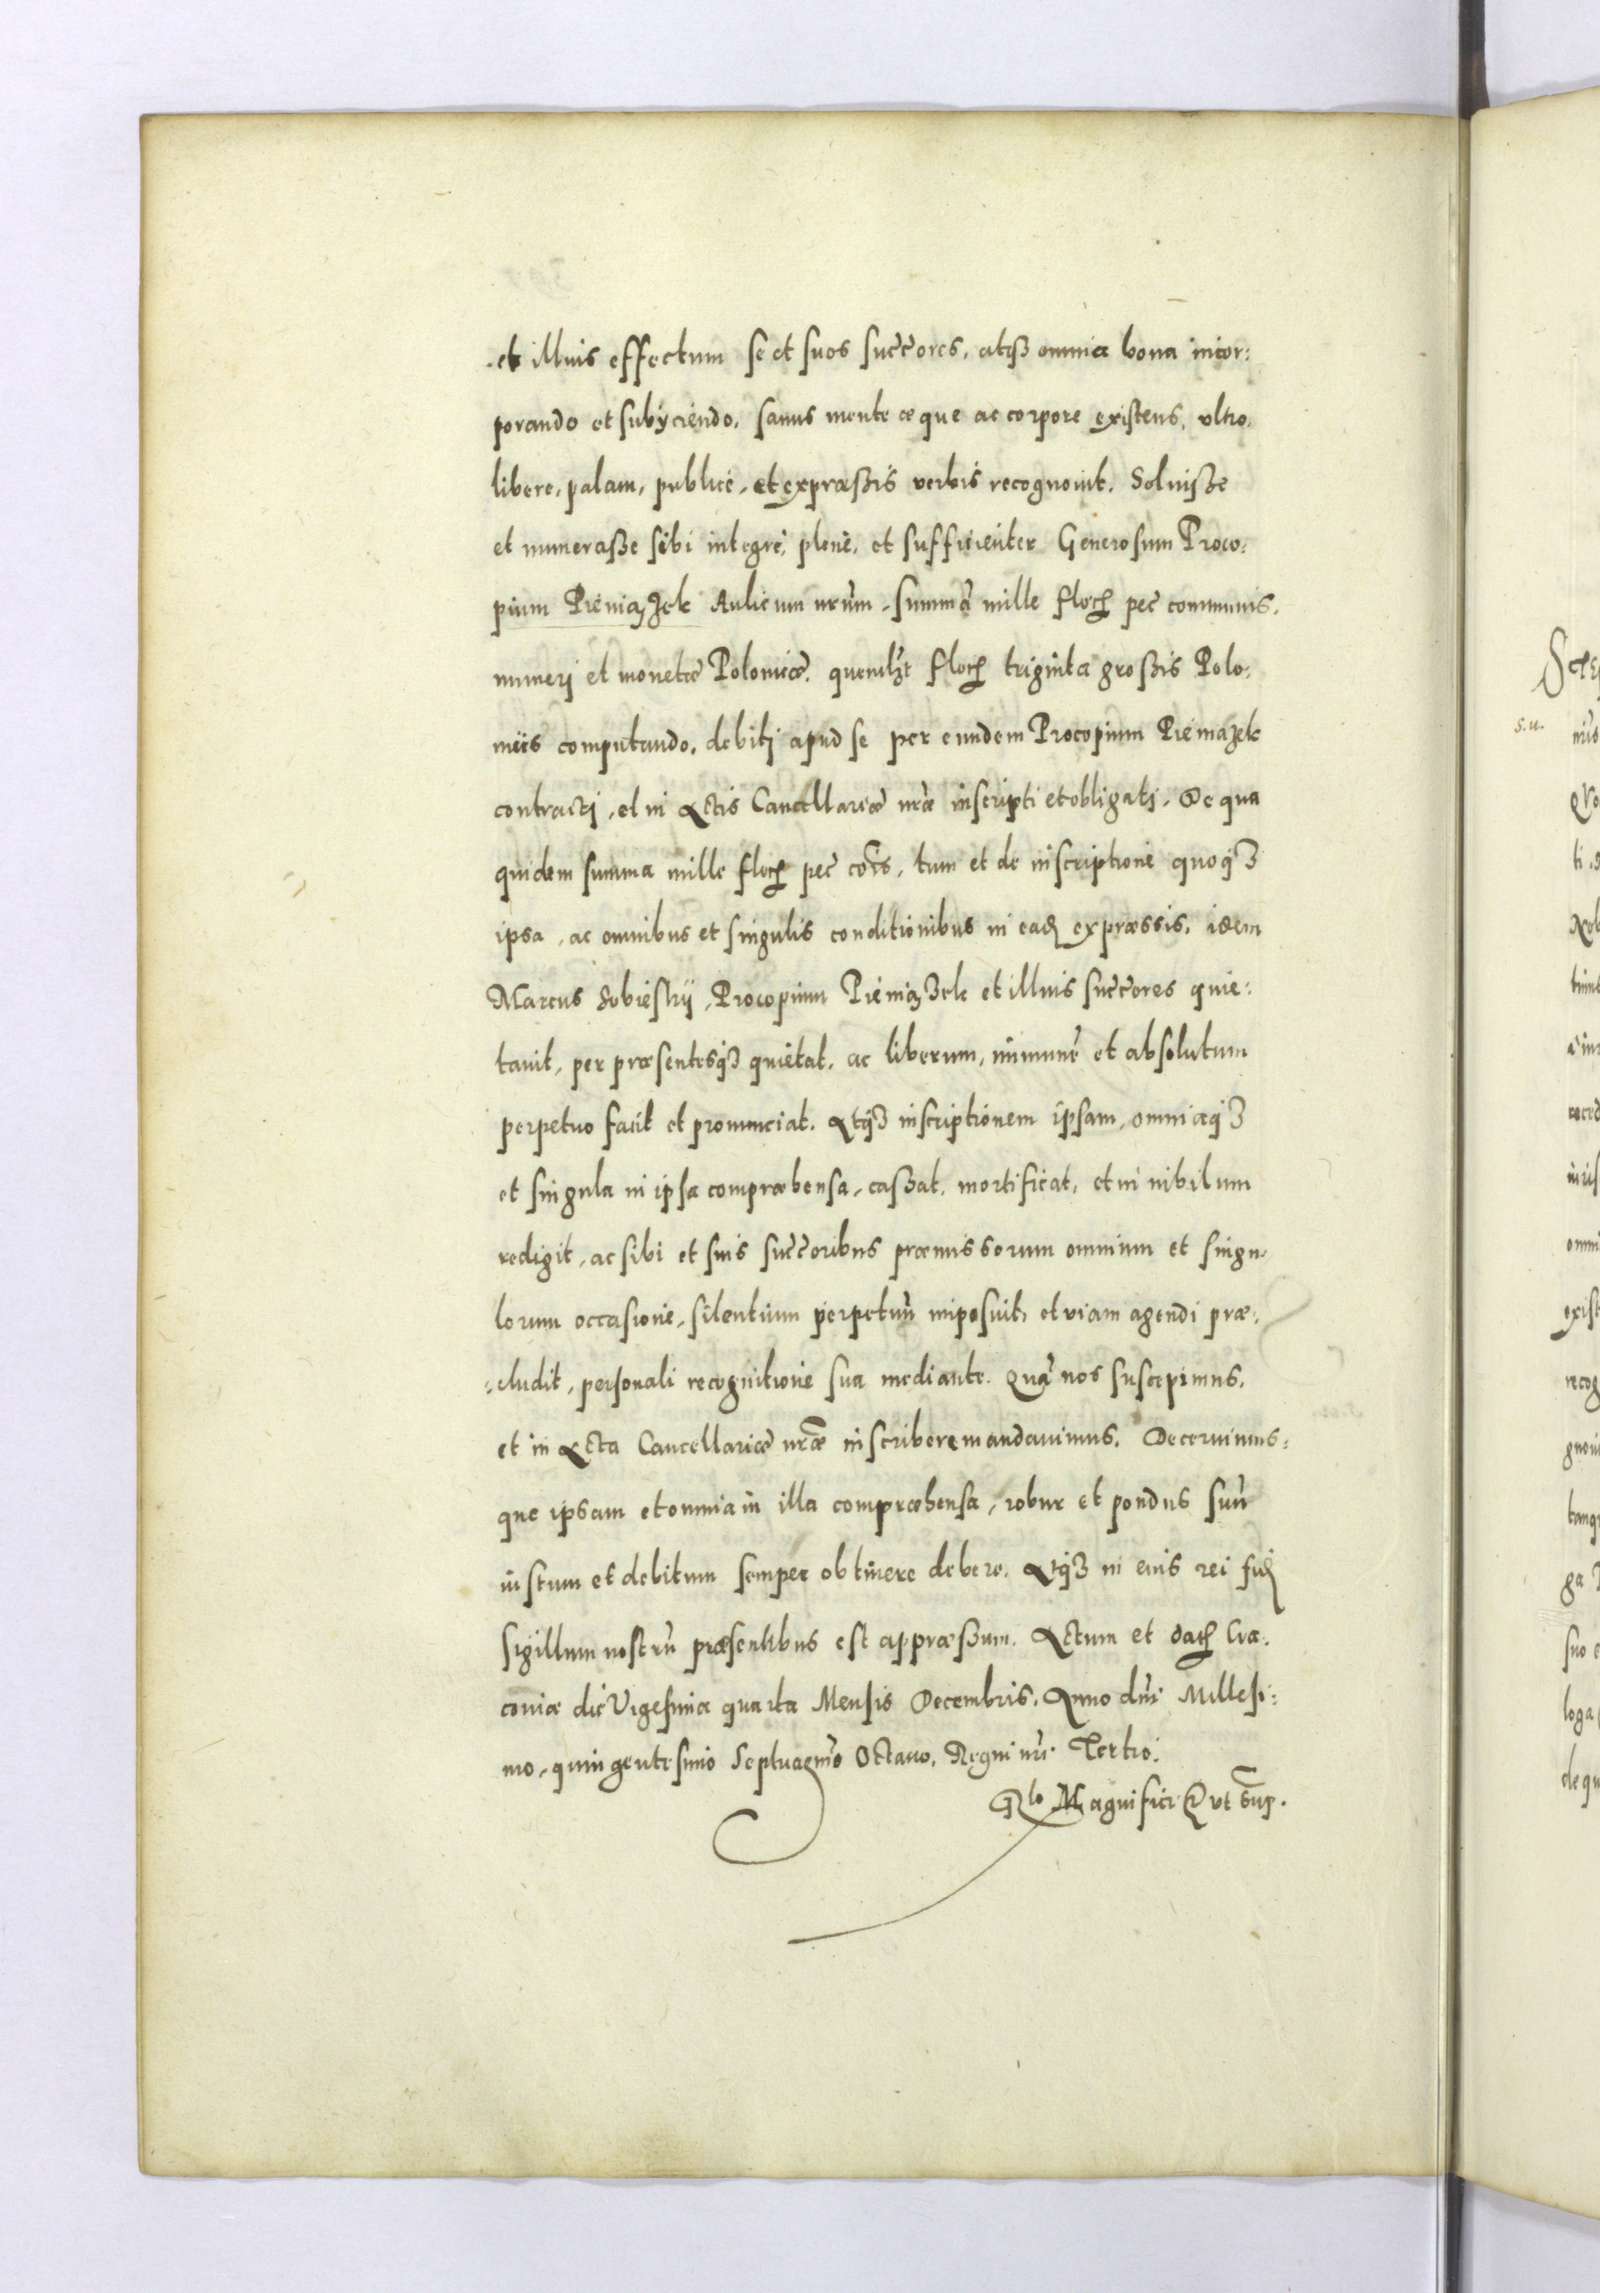 et illius effectum se et suos succ̃ores, atq3 omnia bona incor:
porando et subÿciendo. sanus mente æque ac corpore existens, ultro,
libere, palam, publicè, et expræßis verbis recognovit. Solviße
et numeraße sibi integrè, plenè, et sufficienter Generosum Proco:
pium Pieniązek Aulicum nr̃um, summã mille floꝝ pec̃ communis,
numerj et monetæ Polonicæ, quemlꝫt floꝝ triginta großis Polo:
nicis computando, debitj apud se per eundem Procopium Pieniazek
contractj, et in Actis Cancellariæ nr̃æ inscripti et obligatj. De qua
quidem summa mille floꝝ pec̃ com̃s, tum et de inscriptione quoq3
ipsa, ac omnibus et singulis conditionibus in eađ expræssis, idem
Marcus Sobieskÿ, Procopium Pieniązek et illius succ̃ores quie:
tavit, per præsentesq3 quietat, ac liberum, immunẽ et absolutum
perpetuo facit et pronunciat. Atq3 inscriptionem ipsam, omniaq3
et singula in ipsa compræhensa, caßat, mortificat, et in nihilum
redigit, ac sibi et suis succ̃oribus præmissorum omnium et singu:
lorum occasione, silentium perpetuũ imposuit, et viam agendi præ:
:cludit, personali recognitione sua mediante. Quã nos suscepimus,
et in Acta Cancellariæ nr̃æ inscribere mandavimus. Decernimus:
que ipsam et omnia in illa compræhensa, robur et pondus suũ
iustum et debitum semper obtinere debere. Atq3 in eius rei fiđ
Sigillum nostrũ præsentibus est appræßum. Actum et datꝝ Cra:
coviæ die Vigesima quarta Mensis Decembris, Anno dñi Millesi:
mo, quingentesimo Septuagm̃o Octavo, Regni nr̃i Tertio.
Rlo Magnifici &c ut sup.